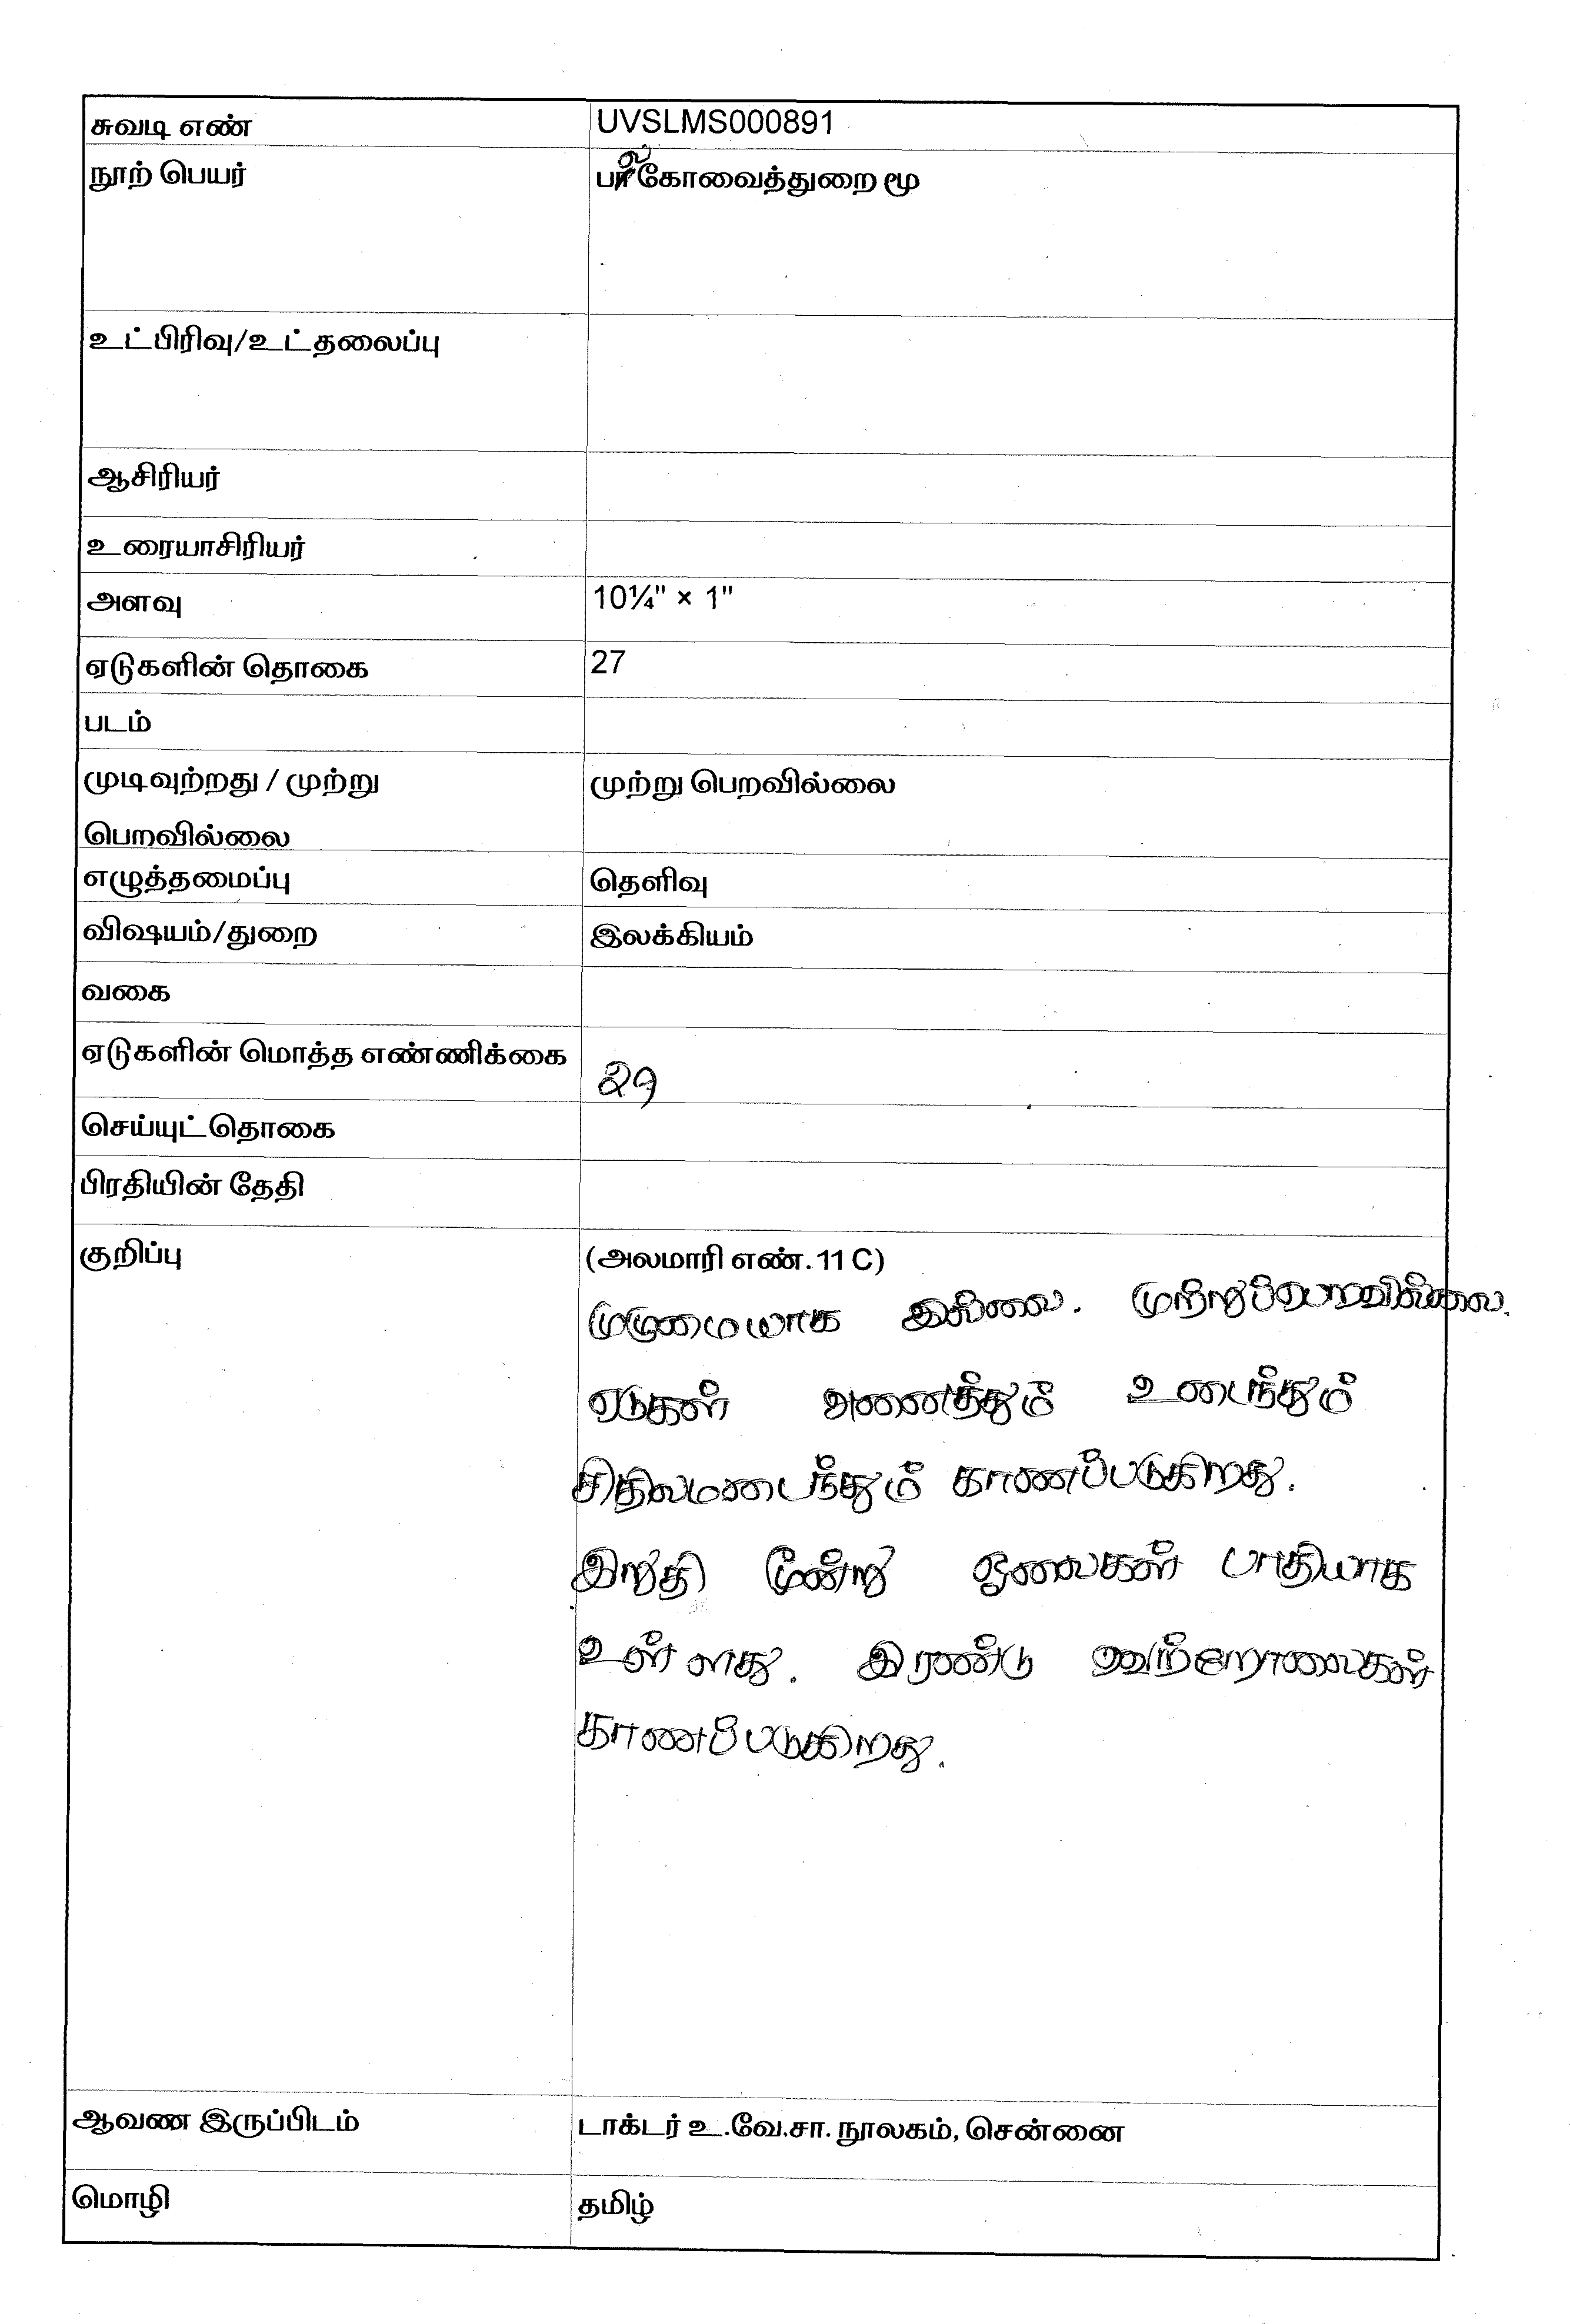 சுவடி எண் UVSLMS000891
நூற் பெயர் கோவைத்துறை மூ
உட்பிரிவு/உட்தலைப்பு
ஆசிரியர்
உரையாசிரியர்
அளவு 10¼" × 1"
ஏடுகளின் தொகை 27
படம்
முடிவுற்றது / முற்று முற்று பெறவில்லை
பெறவில்லை
எழுத்தமைப்பு தெளிவு
விஷயம்/துறை இலக்கியம்
வகை
ஏடுகளின் மொத்த எண்ணிக்கை 29
செய்யுட்தொகை
பிரதியின் தேதி
குறிப்பு (அலமாரி எண். 11 C)
முழுமையாக இல்லை. முற்றுப்பெறவில்லை.
ஏடுகள் அனைத்தும் உடைந்தும்
சிதிலமடைந்தும் காணப்படுகிறது.
இறுதி மூன்று ஓலைகள் பாதியாக
உள்ளது. இரண்டு வெற்றோலைகள்
காணப்படுகிறது.
ஆவண இருப்பிடம் டாக்டர் உ.வே.சா. நூலகம், சென்னை
மொழி தமிழ்